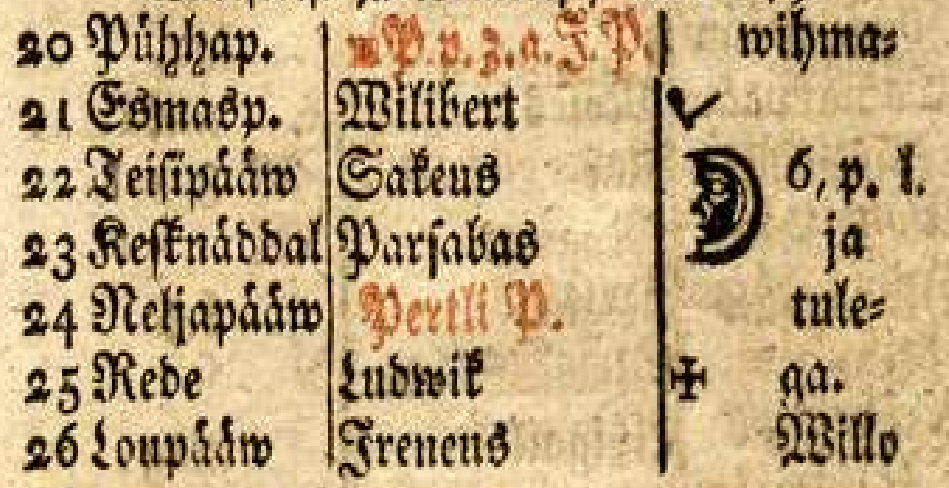 20 Pühhap. w P. p. z. a. J. P. wihma⸗
21 Esmasp. Wilibert
22 Teisipääw Sakeus 6, p. l.
23 Kesknäddal Parsabas ja
24 Neljapääw Pertli P. tule⸗
25 Rede Ludwik ✠ ga.
26 Loupääw Ireneus Willo